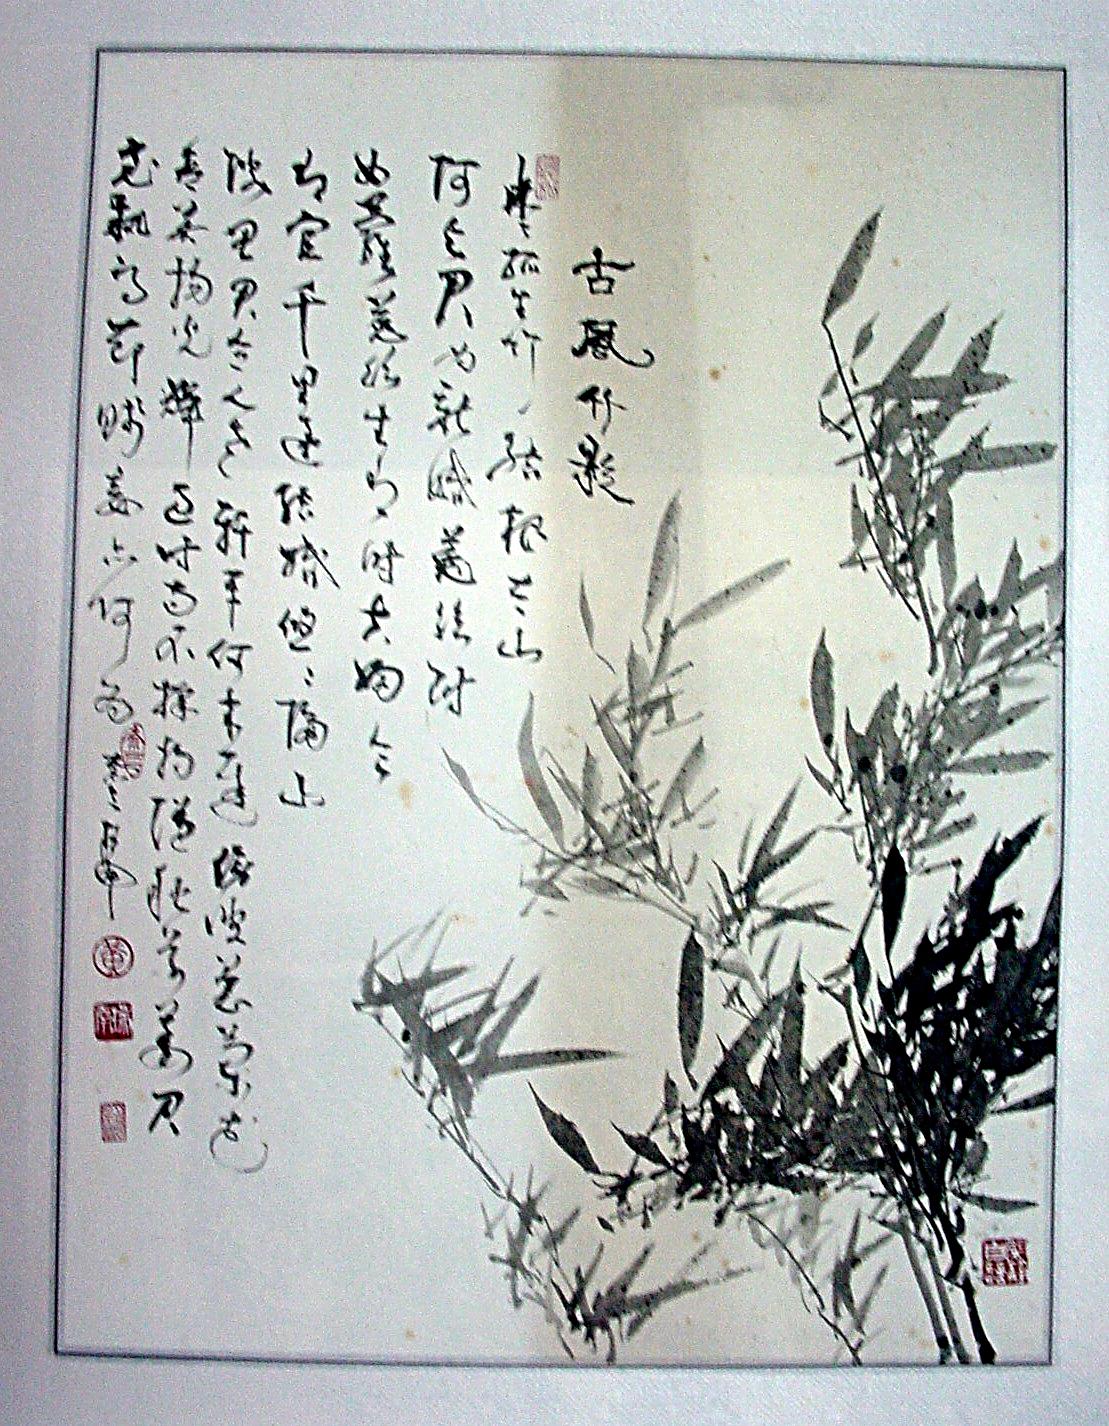 古風竹題
冉〻孤生竹結根泰山
阿與君為新婚菟絲附
女蘿菟絲生有時夫婦會
有宜千里遠結婚悠〻隔山
陂思君令人老軒車何来遲傷彼蕙蘭花
含英揚光輝過時而不採將隨秋草萎君
亮執高節賤妾亦何為